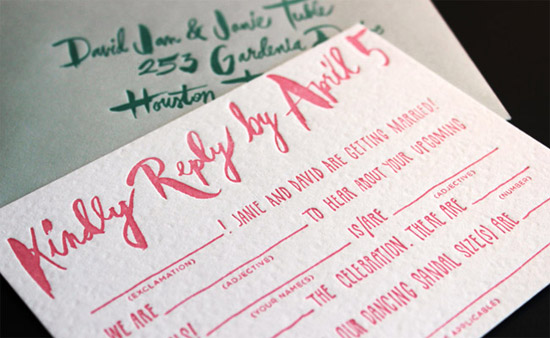 David Jam & Janie
253 Gardenia
Houston
Kindly Reply by April 5
! JANIE AND DAVID ARE GETTING MARRIED!
(EXCLAMATION)
WE ARE TO HEAR ABOUT YOUR UPCOMING
(ADJECTIVE)
IS/ARE
(YOUR NAME(S)) (ADJECTIVE)
THE CELEBRATION. THERE ARE
(NUMBER)
OUR DANCING SANDAL SIZE(S) ARE
APPLICABLE)